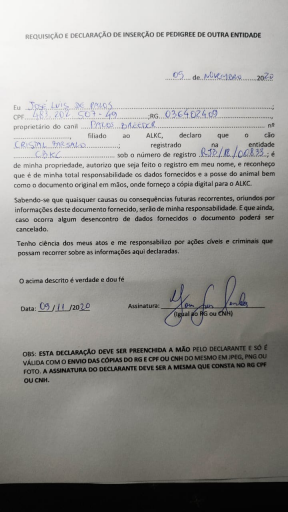 REQUISIÇÃO E DECLARAÇÃO DE INSERÇÃO DE PEDIGREE DE OUTRA ENTIDADE
09 de NOVEMBRO 2020
Eu JOSÉ LUIS DE
CPF RG 036402409
proprietário do canil nº
, filiado ao ALKC, declaro que o cão
CRISTAL registrado na entidade
CBKC sob o número de registro ; é
de minha propriedade, autorizo que seja feito o registro em meu nome, e reconheço
que é de minha total responsabilidade os dados fornecidos e a posse do animal bem
como o documento original em mãos, onde forneço a cópia digital para o ALKC.
Sabendo-se que quaisquer causas ou consequências futuras recorrentes, oriundos por
informações deste documento fornecido, serão de minha responsabilidade. E que ainda,
caso ocorra algum desencontro de dados fornecidos o documento poderá ser
cancelado.
Tenho ciência dos meus atos e me responsabilizo por ações cíveis e criminais que
possam recorrer sobre as informações aqui declaradas.
O acima descrito é verdade e dou fé
Data: 09/11/2020 Assinatura:
(Igual ao RG ou CNH)
OBS: ESTA DECLARAÇÃO DEVE SER PREENCHIDA A MÃO PELO DECLARANTE E SÓ É
VÁLIDA COM O ENVIO DAS CÓPIAS DO RG E CPF OU CNH DO MESMO EM JPEG, PNG OU
FOTO. A ASSINATURA DO DECLARANTE DEVE SER A MESMA QUE CONSTA NO RG CPF
OU CNH.